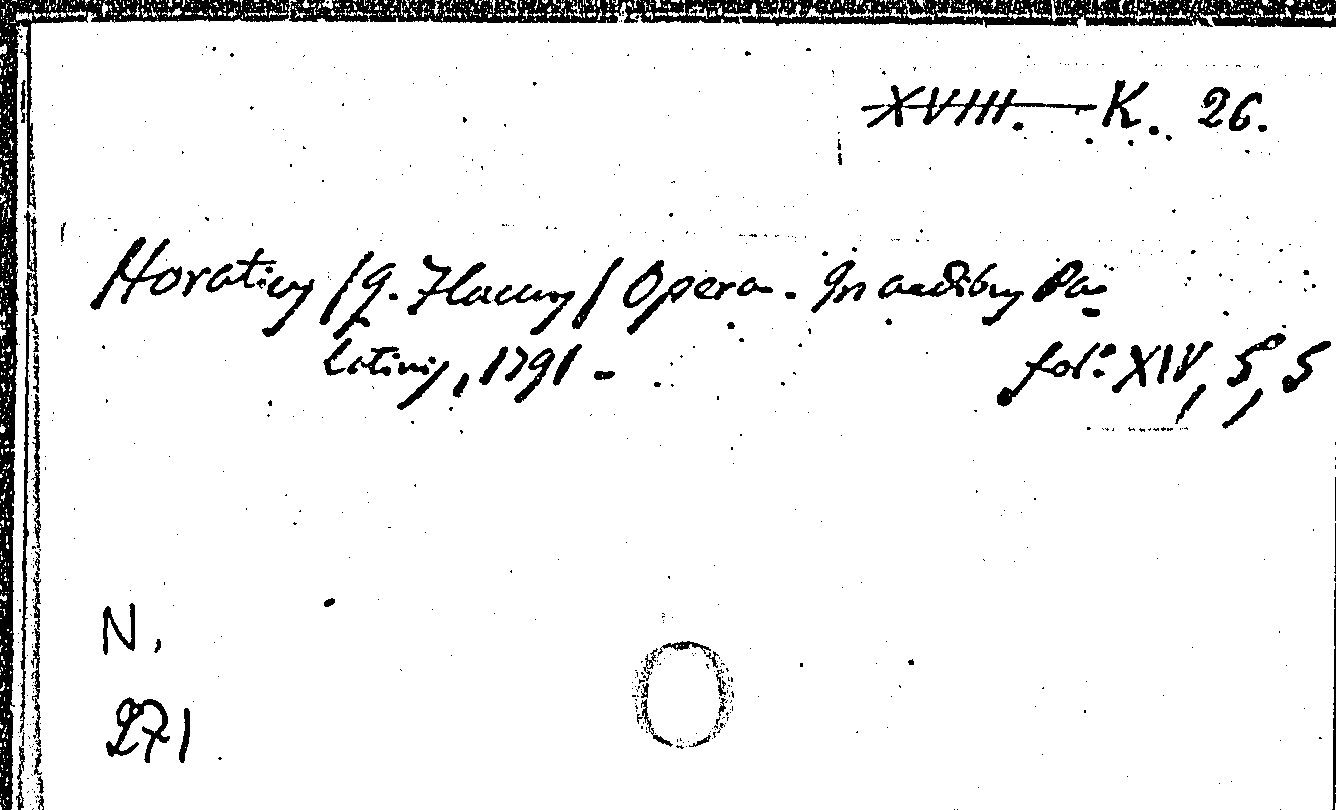 XVIII. K. 26.
Horatius /Q. Flacus/ Opera. In aedibus Pa=
latinis, 1791 -
fol: XIV, 5, 5
N.
271